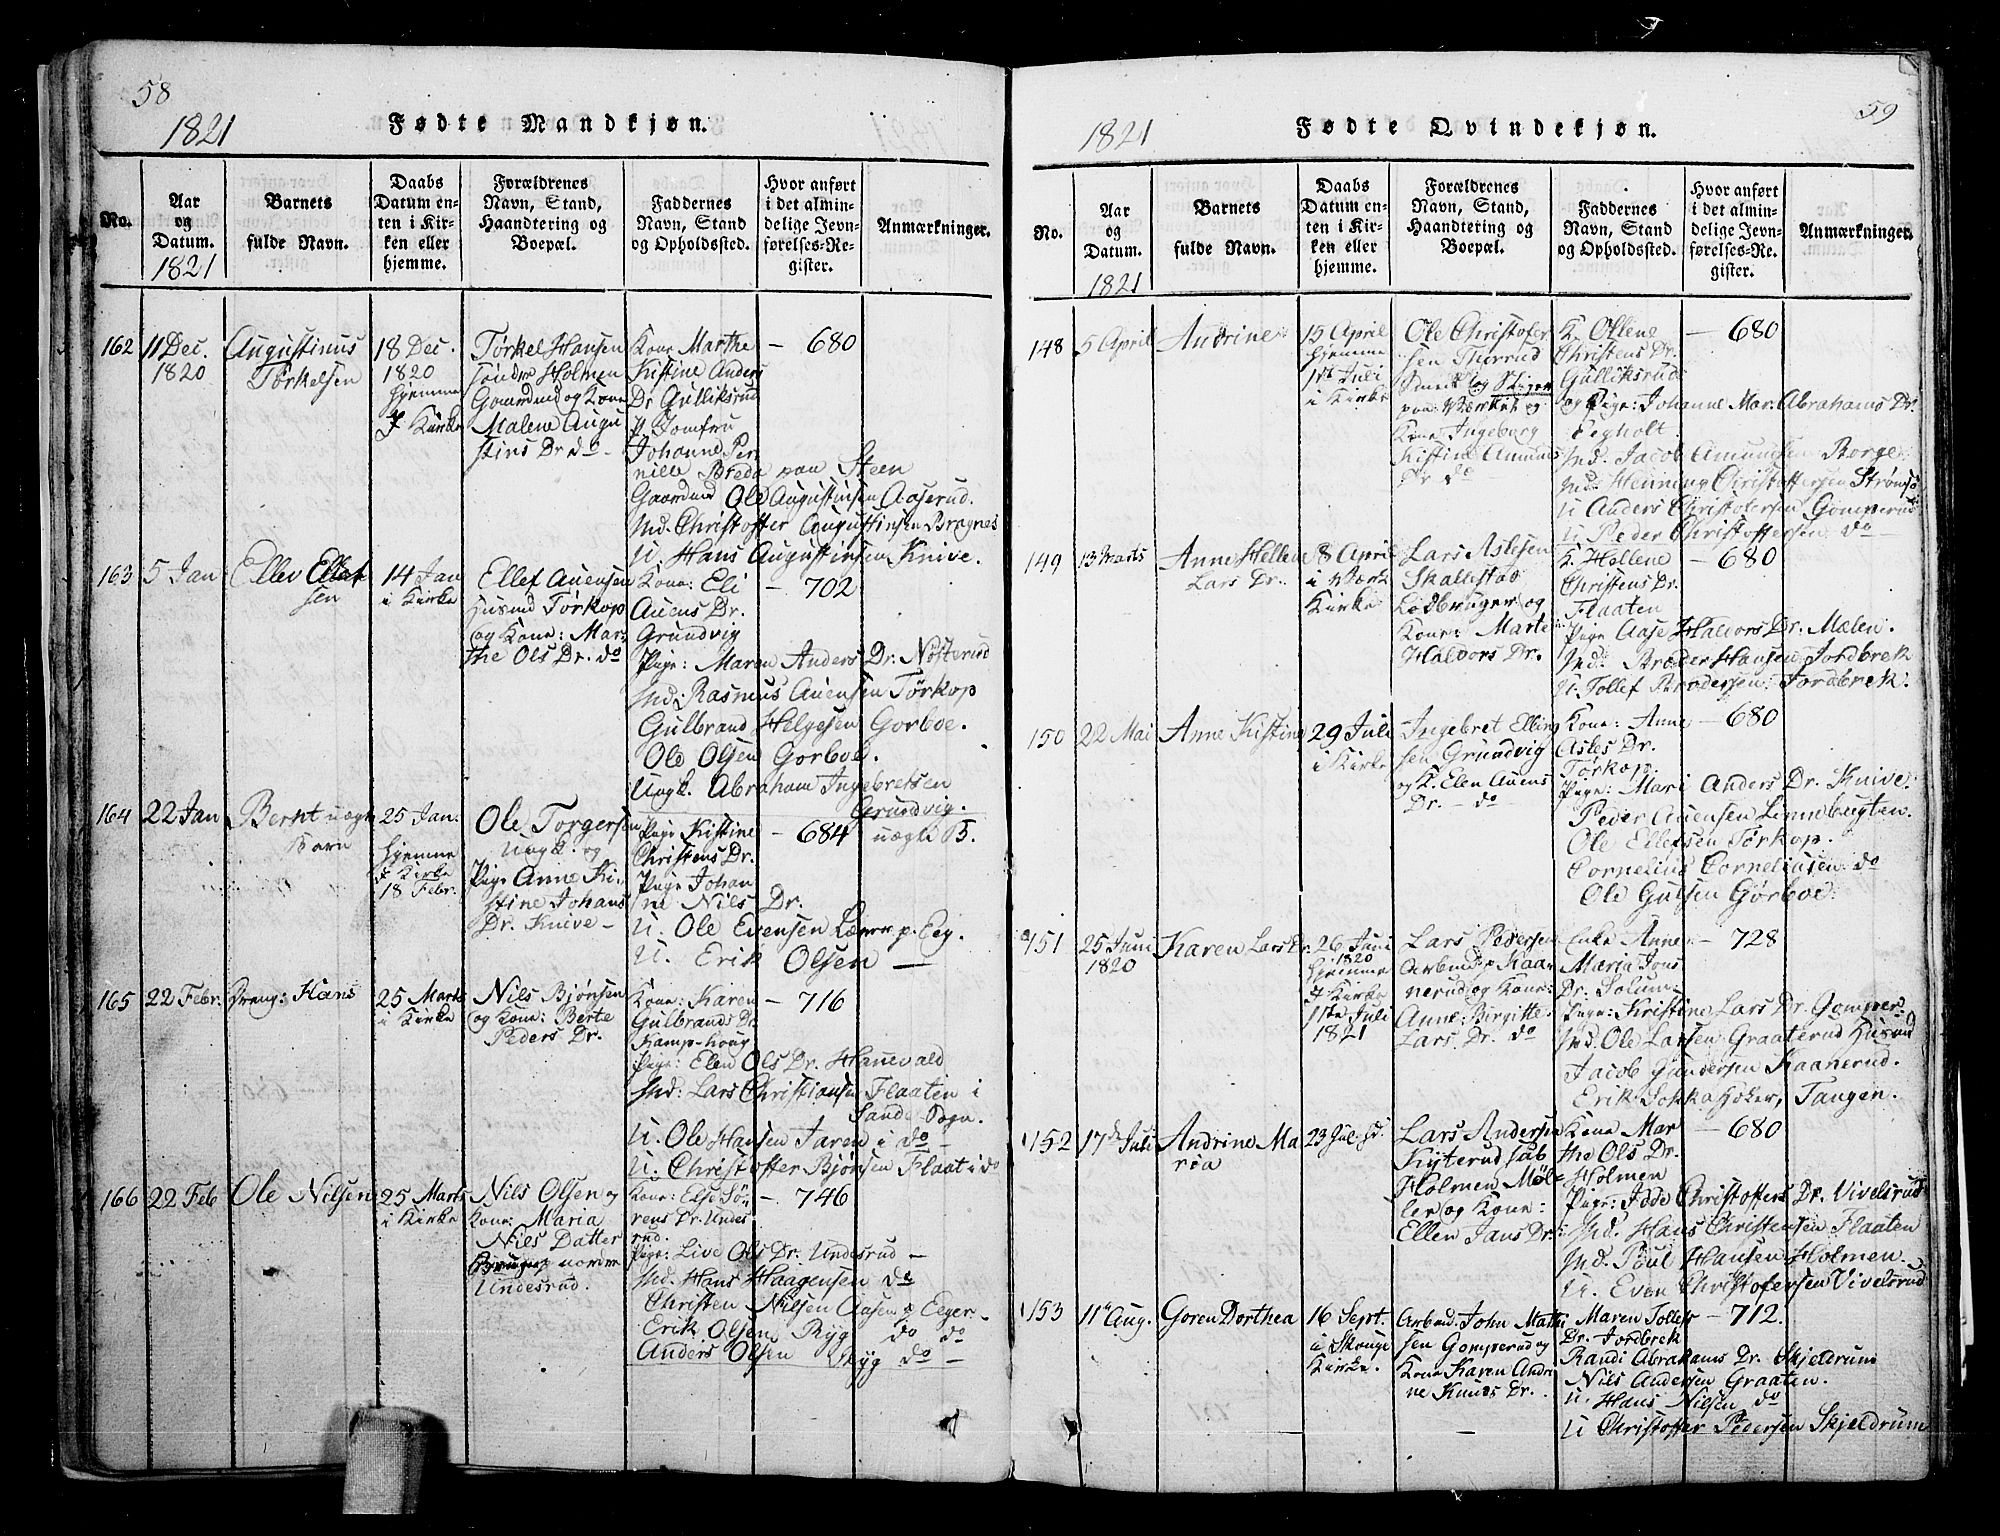 58
1821
Fødte Mandkjøn.
No.
Aar
og
Datum.
1821
Barnets
fulde Navn.
Daabs
Datum en-
ten i Kir-
ken eller
hjemme.
Forældrenes
Navn, Stand,
Haandtering og
Boepæl.
Faddernes
Navn, Stand
og Opholdssted.
Hvor anført
i det almin-
delige Jevn-
førelses-Re-
gister.
Anmærkninger.
162
11 Dec.
1820
Augustinus
Törkelsen
18 Dec.
1820
hjemme
Kirke
Törkel Hansen
söndre Holmen
Gaardmd og Kone
Malene Augu
stins Dr do
Kone Marthe
Kistine Anders
Dr Gulliksrud
p. Jomfru
Johanne Per
nille Breda paa Steen
Gaardmd Ole Augustinsen Aaserud.
Md. Christoffer Augustinsen Bragnes
U. Hans Augustinsen Knive.
680
163
5 Jan
Ellev Ellef
sen
14 Jan
i Kirke
Ellef Auensen
Husmd Törkop
og Kone: Mar
the Ols Dr. do
Kone: Eli
Auens Dr.
Grundvig
Pige: Maren Anders Dr. Nösterud
Md: Rasmus Auensen Törkop
Gulbrand Helgesen Gorboe.
Ole Olsen Gorboe.
Ungk. Abraham Ingebretsen
Grundvig.
702
164
22 Jan
Bernt uægte
Barn
25 Jan.
hjemme
Kirke
18 Febr.
Ole Torgersen
Ungk. og
Pige Anne Ki-
stine Johans
Dr. Knive
Pige Kistine
Christens Dr.
Pige Johan
ne Nils Dr.
U. Ole Evensen p. Eeg.
U. Erik Olsen
684
uægte B.
165
22 Febr.
Dreng: Hans
25 Marts
i Kirke
Nils Bjönsen
og Kone: Berte
Peders Dr.
Kone: Karen
Gulbrands Dr
Kamphoug
Pige: Ellen Ols Dr. Hanevald
Md: Lars Christiansen Flaaten i
Sande Sogn.
U. Ole Hansen Jaren i do
U. Christoffer Bjönsen Flaat i do
716
166
22 Feb
Ole Nilsen
25 Marts
i Kirke
Nils Olsen og
Kone: Maria
Nils Datter
Bruger nordre
Undesrud.
Kone: Else Sö-
rens Dr. Undes
rud.
Pige: Live Ols Dr. Undesrud
Md. Hans Haagensen do
Christen Nilsen Aasen p Eeger
Erik Olsen Ryg do do
Anders Olsen Ryg do
746
59
1821
Fødte Qvindekjøn.
No.
Aar
og
Datum.
1821
Barnets
fulde Navn.
Daabs
Datum en-
ten i Kir-
ken eller
hjemme.
Forældrenes
Navn, Stand,
Haandtering og
Boepæl.
Faddernes
Navn, Stand
og Opholdssted.
Hvor anført
i det almin-
delige Jevn-
førelses-Re-
gister.
Anmærkninger.
148
5 April
Andrine
15 April
hjemme
1ste Juli
i Kirke
Ole Christofer
sen
Smed og Stiger
paa Værket og
Kone Ingeborg
Kistine Amunds
Dr do
K. Ollene
Christens Dr.
Gulliksrud
og Pige: Johanne Mar. Abrahams Dr.
Eegholt.
Md. Jacob Amundsen Borge
Md. Henning Christoffersen Strömsö
U Anders Christofersen Gomperud
U. Peder Christoffersen do
680
149
13 Marts
Anne Hellene
Lars Dr.
8 April
i Værk
Kirke
Lars Aslesen
Skallestad
Lodbruger og
Kone: Marte
Haldors Dr.
K. Hellene
Christens Dr.
Flaaten
Pige Aase Haldors Dr. Mælen.
Md. Breder Hansen Jordbrek
U. Tollef Brodersen Jordbrek.
680
150
22 Mai
Anne Kistine
29 Juli
i Kirke
Ingebret Elling
sen Grundvig
og K. Elen Auens
Dr. do
Kone: Anne
Asles Dr.
Törkop.
Pige: Mari Anders Dr. Knive.
Peder Auensen Linnebugten.
Ole Ellefsen Törkop.
Cornelius Corneliusen do
Ole Gulsen Görboe.
680
151
25 Juni
1820
Karen Lars Dr.
26 Juni
1820
hjemme
Kirke
1ste Juli
1821
Lars Pedersen
Arbmd p Kaa-
nerud og Kone:
Anne: Birgitte
Lars Dr. do
Enke Anne
Maria Jons
Dr. Solum
Pige: Kristine Lars Dr. Gomper
Md. Ole Larsen Graaterud Husmd
Jacob Gundersen Kaanerud.
Erik Sokka Höker, Tangen.
728
152
17de Juli
Andrine Ma
ria
23 Jul. hd.
Lars Andersen
Kyterud sub
Holmen Möl-
ler og Kone:
Ellen Jans Dr.
Kone Mar
the Ols Dr.
Holmen
Pige: Idde Christoffers Dr. Vivelsrud
Md. Hans Christensen Flaaten
Md. Poul Hansen Holmen
U. Even Christofersen Vivelsrud
680
153
11te Aug.
Goren Dorthea
16 Sept.
i Skouge
Kirke.
Arbmd. John Mathi
sen Gomperud og
Kone Karen Andri
ne Knuds Dr.
Maren Tollefs
Dr. Jordbrek
Randi Abrahams Dr. Skjeldrum
Nils Andersen Graaten.
U. Hans Nilsen do
U Christoffer Pedersen Skjeldrum
712.